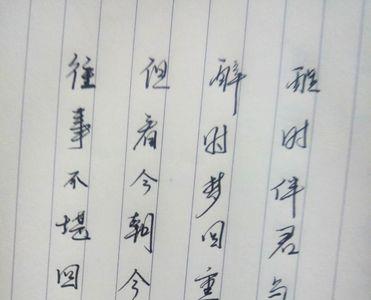 醒时伴君与
醉时梦回重
但看今朝今
往事不堪回